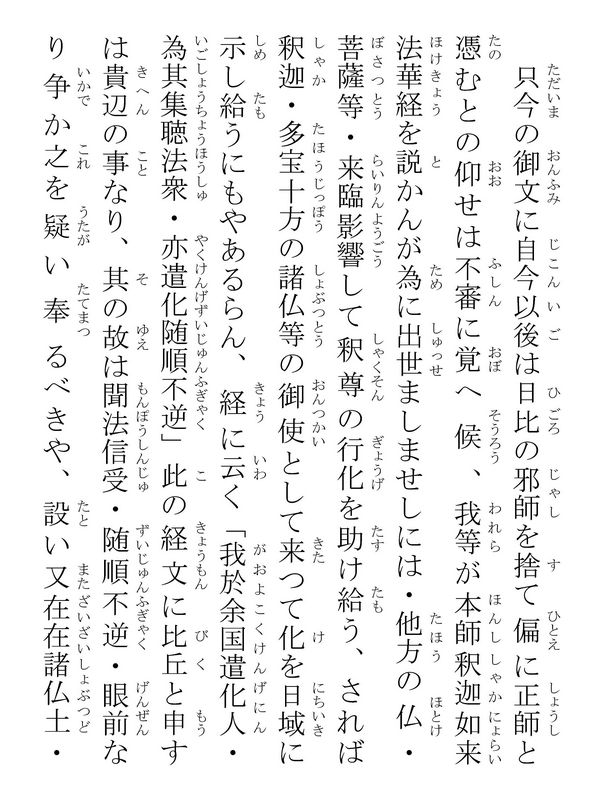 只今の御文に自今以後は日比の邪師を捨て偏に正師と
憑むとの仰せは不審に覚へ候、我等が本師釈迦如来
法華経を説かんが為に出世ましませしには・他方の仏・
菩薩等・来臨影響して釈尊の行化を助け給う、されば
釈迦・多宝十方の諸仏等の御使として来つて化を日域に
示し給うにもやあるらん、経に云く「我於余国遣化人・
為其集聴法衆・亦遣化随順不逆」此の経文に比丘と申す
は貴辺の事なり、其の故は聞法信受・随順不逆・眼前な
り争か之を疑い奉るべきや、設い又在在諸仏土・